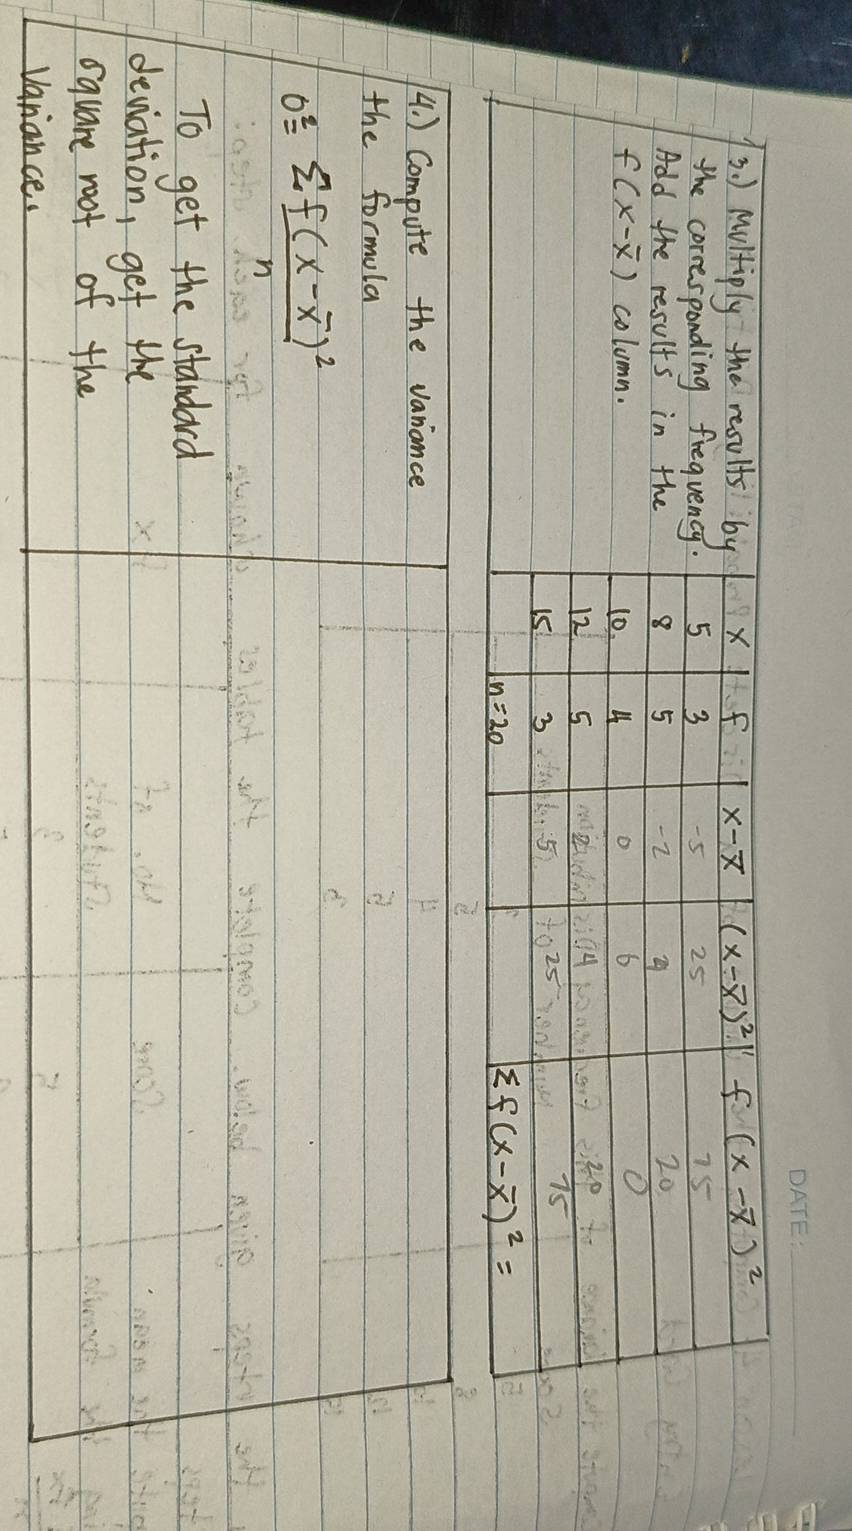 DATE:
3.) Multiply the results by
the corresponding frequency.
Add the results in the
f(x-x̄) column.
x f x-x̄ (x-x̄)² f(x-x̄)²
5 3 -5 25 75
8 5 -2 4 20
10 4 0 6 0
12 5 2 4 20
15 3 5 25 75
n=20 Σf(x-x̄)² =
4.) Compute the variance
the formula
σ² = Σf(x-x̄)²
n
To get the standard
deviation, get the
square root of the
variance.